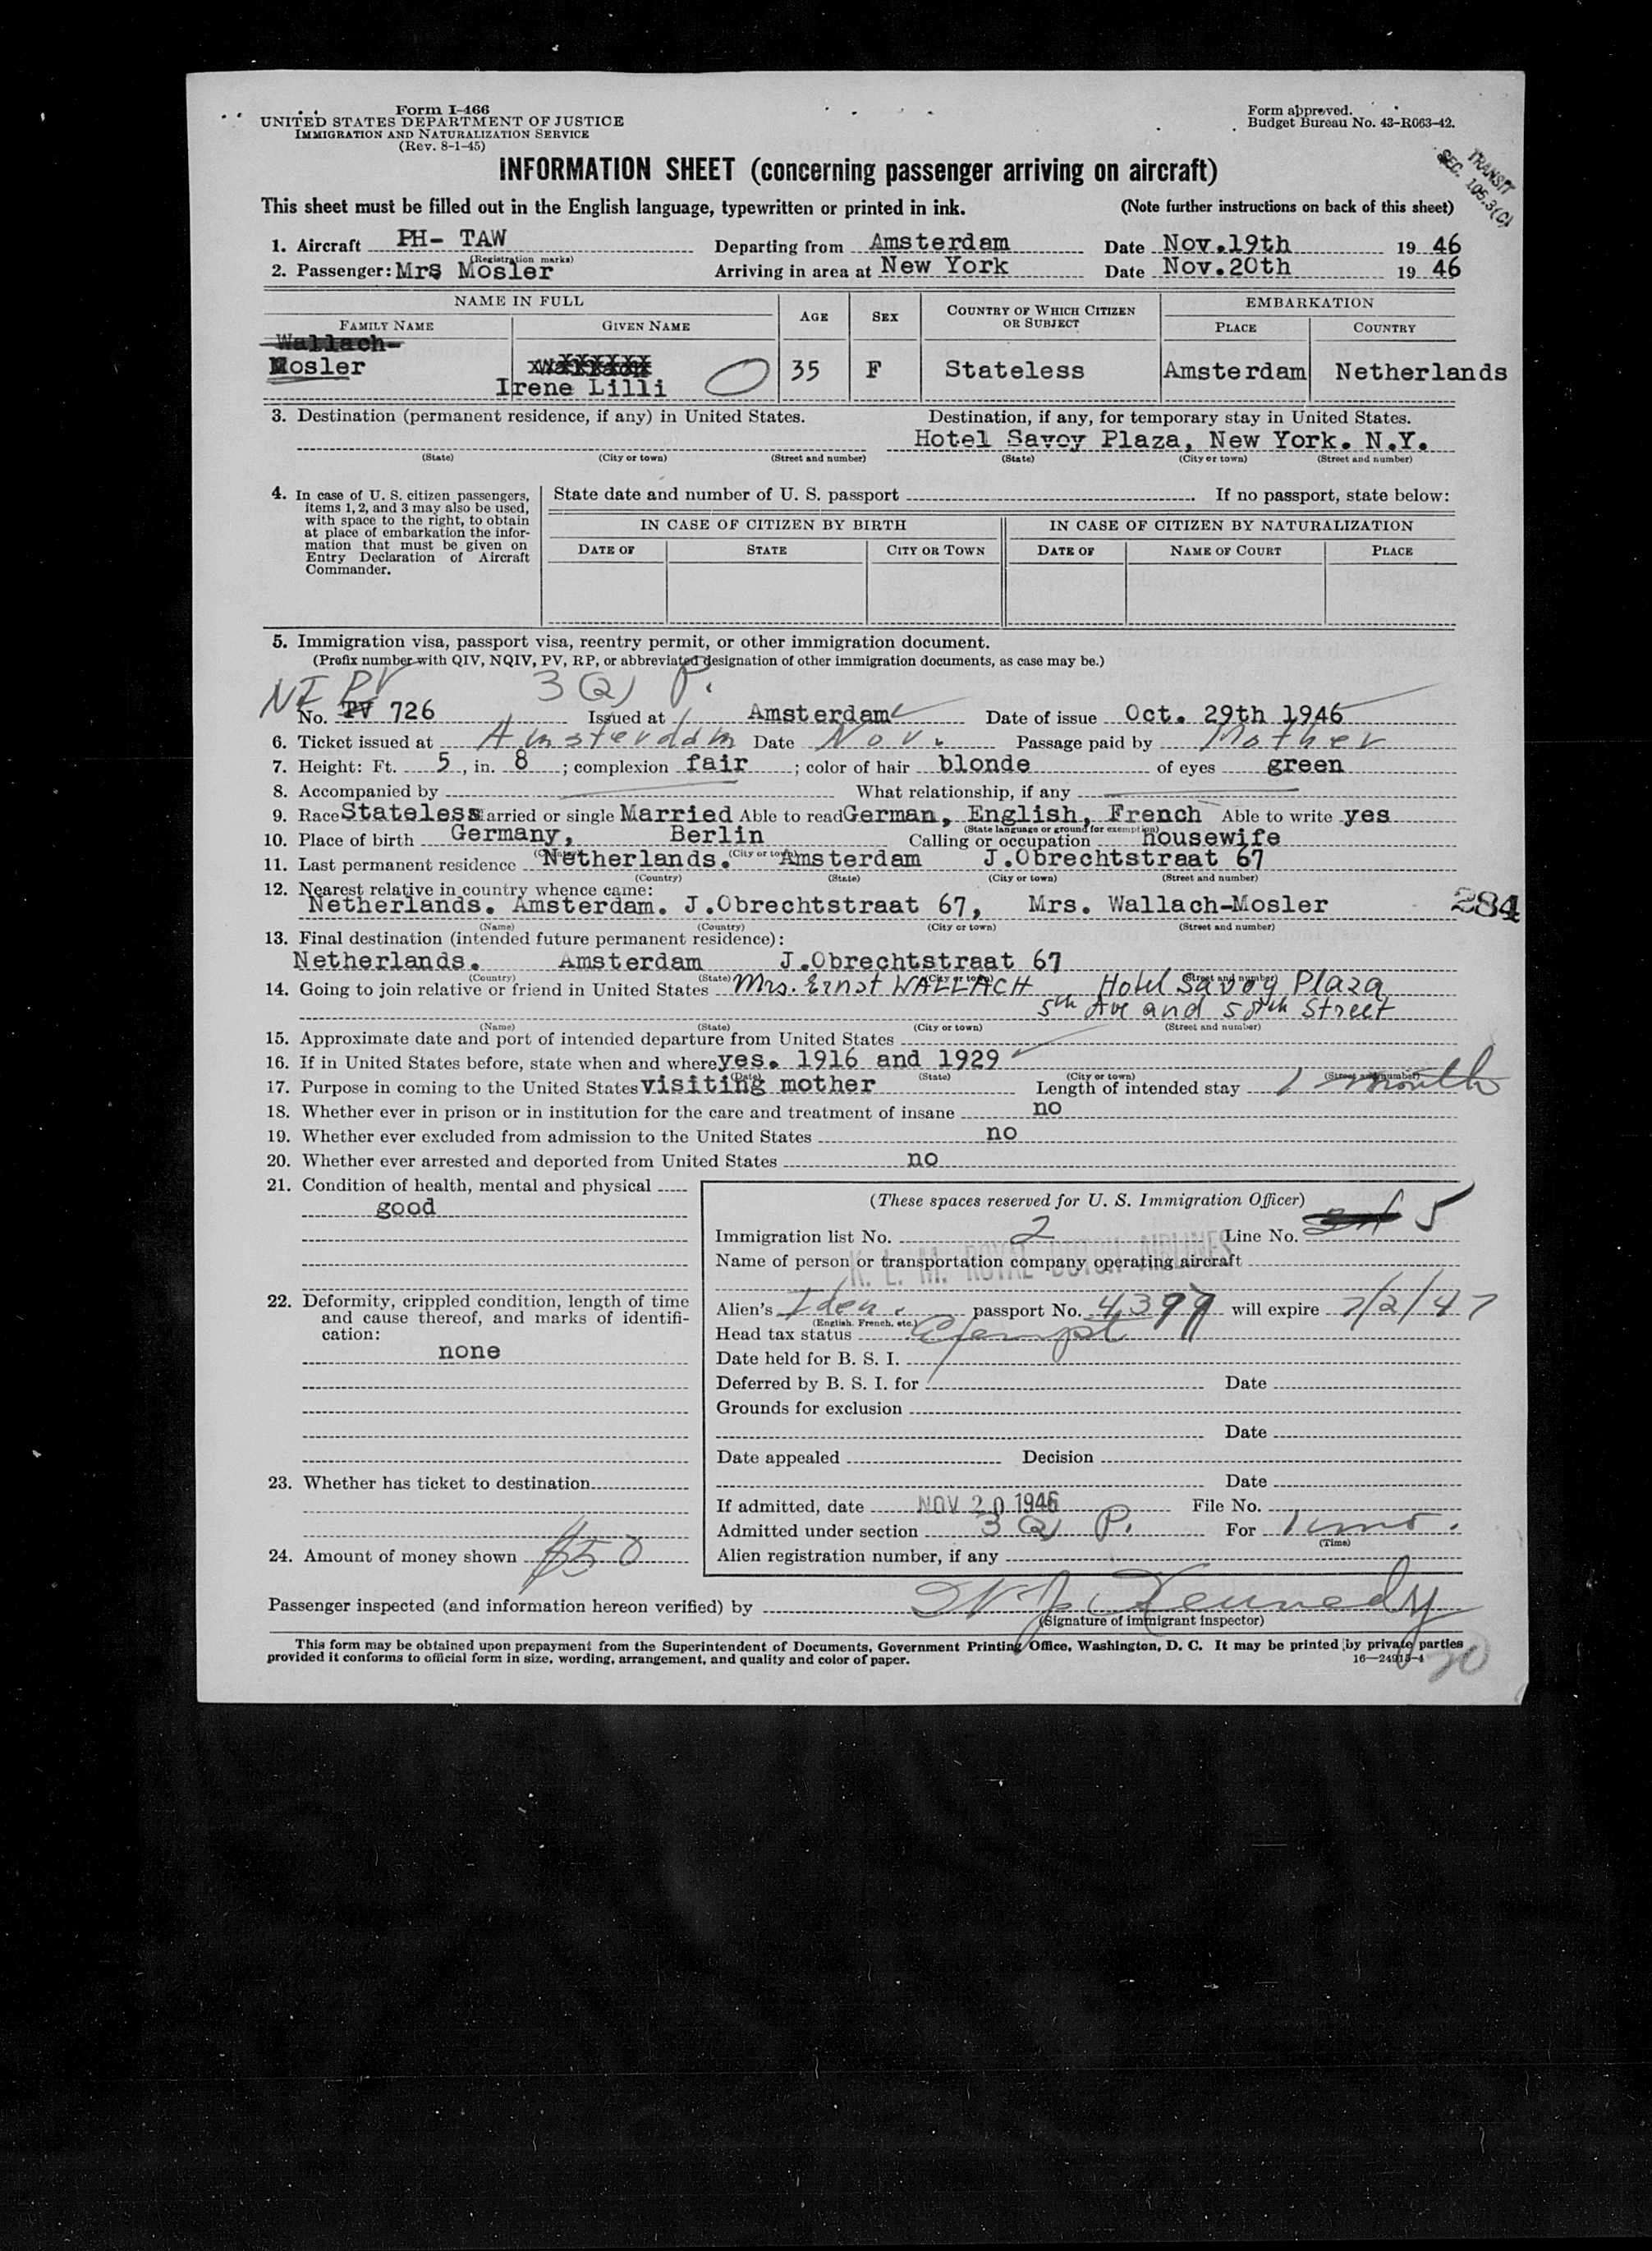 Form I-466
UNITED STATES DEPARTMENT OF JUSTICE
IMMIGRATION AND NATURALIZATION SERVICE
(Rev. 8-1-45)
Form approved.
Budget Bureau No. 43-R063-42.
TRANSIT
SEC. 105.3(C)
INFORMATION SHEET (concerning passenger arriving on aircraft)
This sheet must be filled out in the English language, typewritten or printed in ink. (Note further instructions on back of this sheet)
1. Aircraft PH- TAW Departing from Amsterdam Date Nov.19th 19 46
(Registration marks)
2. Passenger: Mrs Mosler Arriving in area at New York Date Nov.20th 19 46
NAME IN FULL AGE SEX COUNTRY OF WHICH CITIZEN OR SUBJECT EMBARKATION
FAMILY NAME GIVEN NAME PLACE COUNTRY
Wallach-
Mosler 35 F Stateless Amsterdam Netherlands
Irene Lilli
3. Destination (permanent residence, if any) in United States. Destination, if any, for temporary stay in United States.
Hotel Savoy Plaza, New York. N.Y.
(State) (City or town) (Street and number) (State) (City or town) (Street and number)
4. In case of U. S. citizen passengers, items 1, 2, and 3 may also be used, with space to the right, to obtain at place of embarkation the information that must be given on Entry Declaration of Aircraft Commander.
State date and number of U. S. passport . If no passport, state below:
IN CASE OF CITIZEN BY BIRTH IN CASE OF CITIZEN BY NATURALIZATION
DATE OF STATE CITY OR TOWN DATE OF NAME OF COURT PLACE
5. Immigration visa, passport visa, reentry permit, or other immigration document.
(Prefix number with QIV, NQIV, PV, RP, or abbreviated designation of other immigration documents, as case may be.)
NI PV 3 (2) P.
No. PV 726 Issued at Amsterdam Date of issue Oct. 29th 1946
6. Ticket issued at Amsterdam Date Nov. Passage paid by Mother
7. Height: Ft. 5, in. 8; complexion fair; color of hair blonde of eyes green
8. Accompanied by What relationship, if any
9. Race Stateless Married or single Married Able to read German, English, French Able to write yes
(State language or ground for exemption)
10. Place of birth Germany, Berlin Calling or occupation housewife
(Country) (City or town)
11. Last permanent residence Netherlands. Amsterdam J.Obrechtstraat 67
(Country) (State) (City or town) (Street and number)
12. Nearest relative in country whence came:
Netherlands. Amsterdam. J.Obrechtstraat 67, Mrs. Wallach-Mosler 284
(Name) (Country) (City or town) (Street and number)
13. Final destination (intended future permanent residence):
Netherlands. Amsterdam J.Obrechtstraat 67
(Country) (State) (City or town) (Street and number)
14. Going to join relative or friend in United States Mrs. Ernst WALLACH Hotel Savoy Plaza
5th Ave and 58th Street
(Name) (State) (City or town) (Street and number)
15. Approximate date and port of intended departure from United States
16. If in United States before, state when and where yes. 1916 and 1929
(Date) (State) (City or town) (Street and number)
17. Purpose in coming to the United States visiting mother Length of intended stay 1 month
18. Whether ever in prison or in institution for the care and treatment of insane no
19. Whether ever excluded from admission to the United States no
20. Whether ever arrested and deported from United States no
21. Condition of health, mental and physical
good
22. Deformity, crippled condition, length of time and cause thereof, and marks of identification:
none
23. Whether has ticket to destination
24. Amount of money shown $50
(These spaces reserved for U. S. Immigration Officer)
Immigration list No. 2 Line No. 5
Name of person or transportation company operating aircraft
K. L. M. ROYAL DUTCH AIRLINES
Alien's Iden. passport No. 4399 will expire 7/2/47
(English, French, etc.)
Head tax status Exempt
Date held for B. S. I.
Deferred by B. S. I. for Date
Grounds for exclusion
Date
Date appealed Decision
Date
If admitted, date NOV 20 1946 File No.
Admitted under section 3 (2) P. For 1 mo.
(Time)
Alien registration number, if any
Passenger inspected (and information hereon verified) by Kennedy
(Signature of immigrant inspector)
This form may be obtained upon prepayment from the Superintendent of Documents, Government Printing Office, Washington, D. C. It may be printed by private parties
provided it conforms to official form in size, wording, arrangement, and quality and color of paper. 16—24915-4